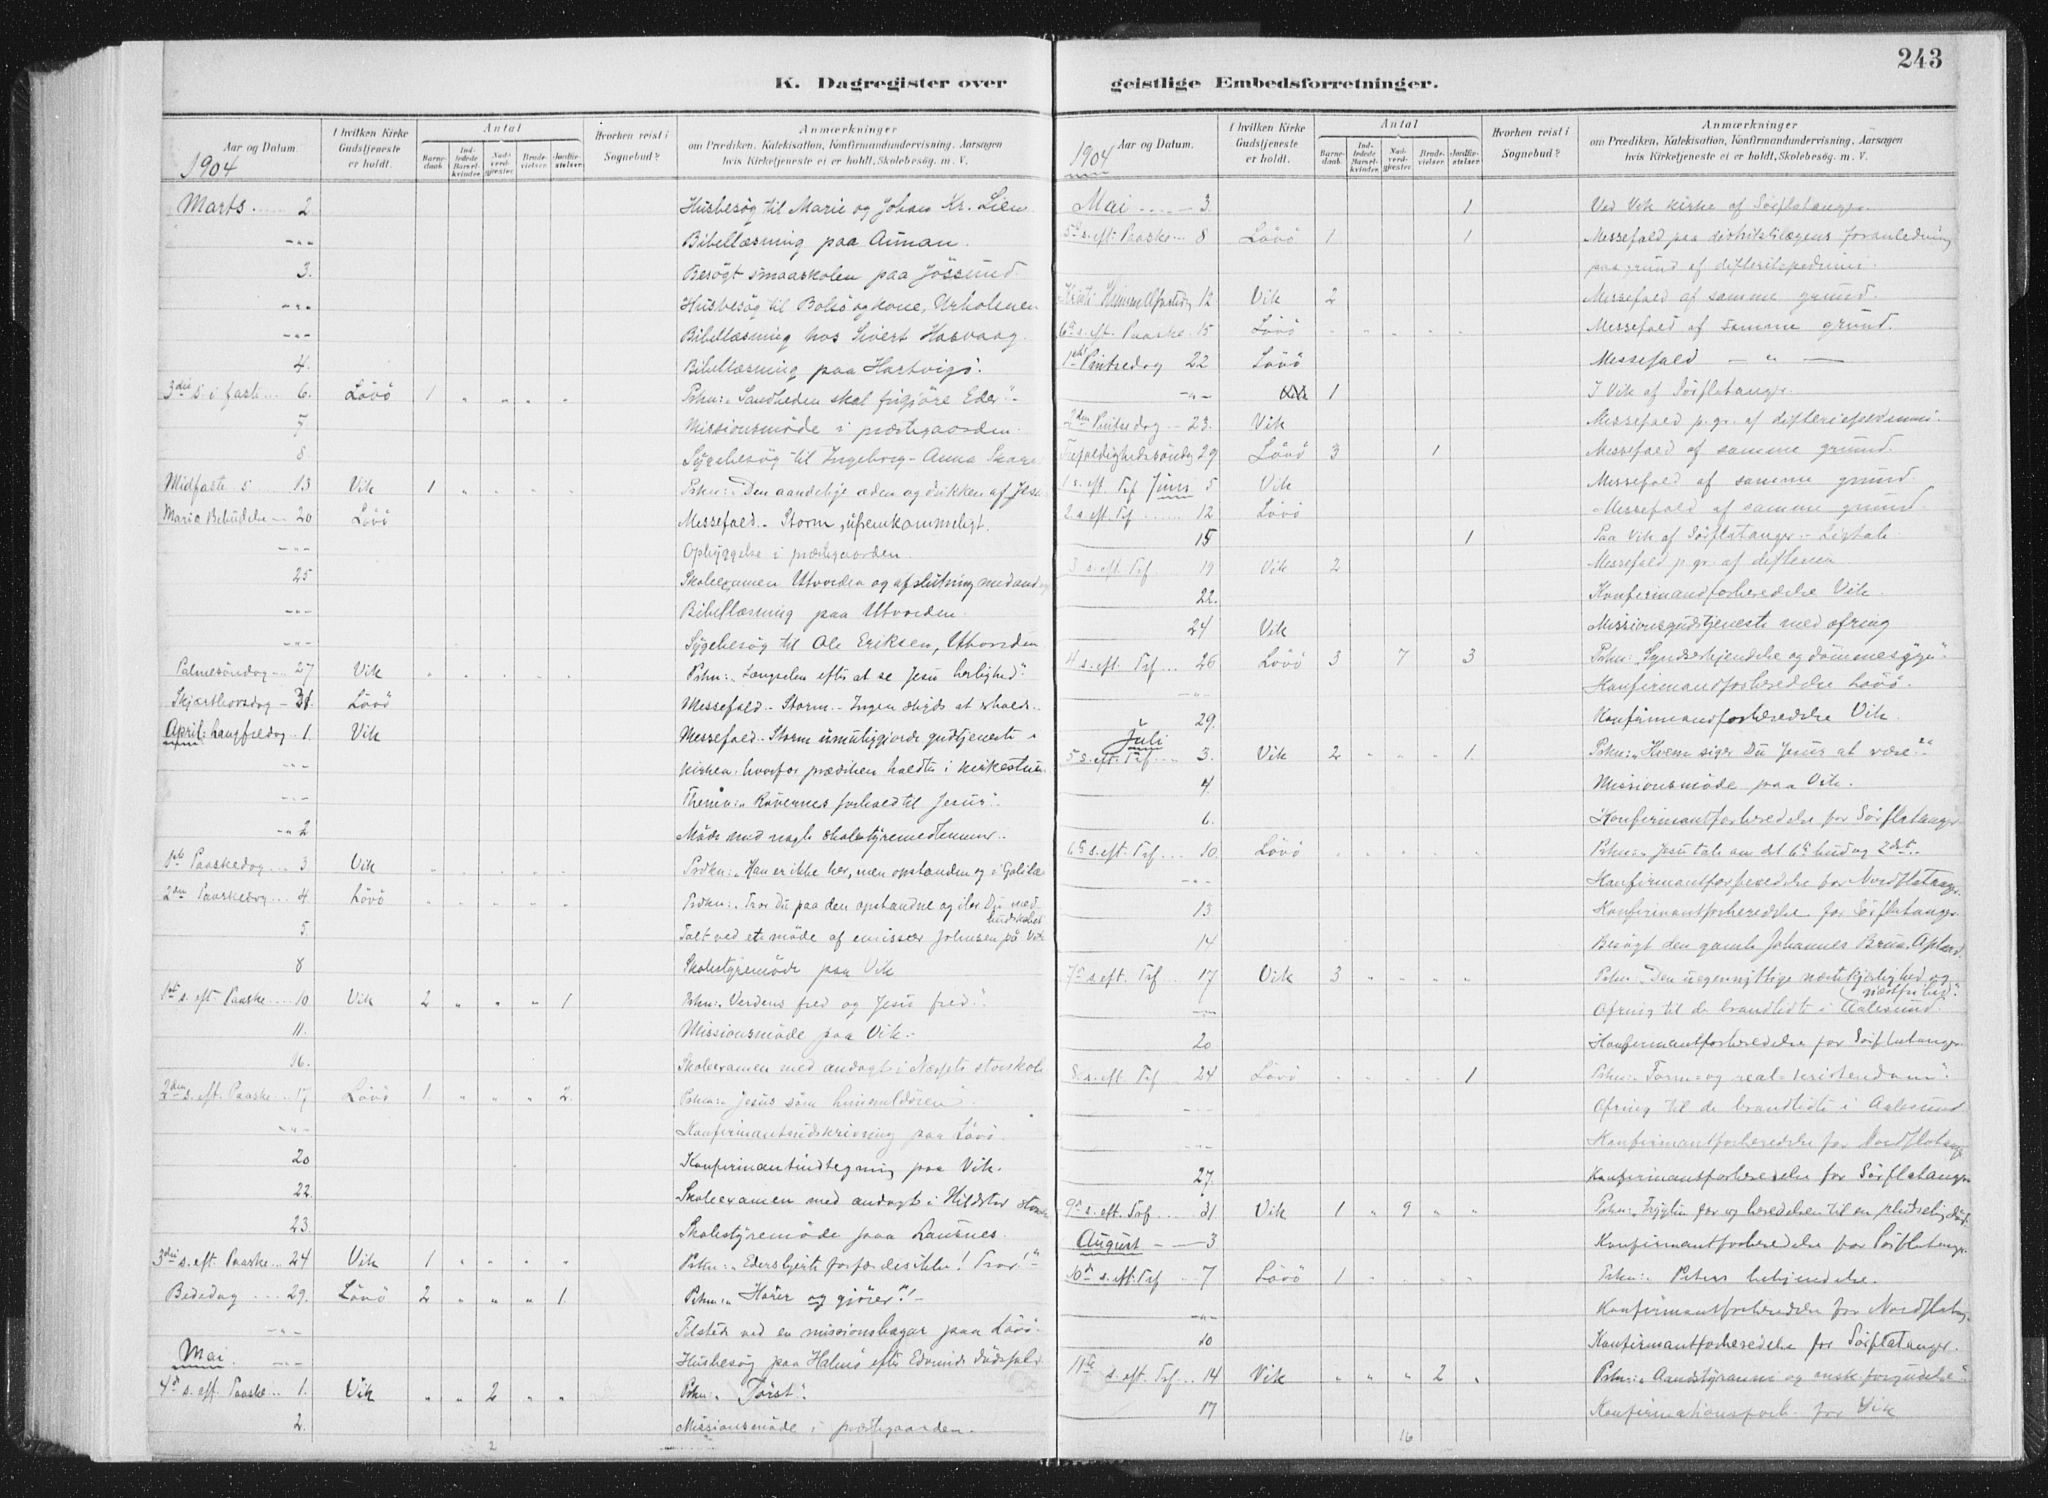 243
K. Dagregister over geistlige Embedsforretninger.
Aar og Datum
I hvilken Kirke Gudstjeneste er holdt.
Antal
Barne-daab.
Ind-ledede Barsel-kvinder.
Nad-verd-gjester.
Brude-vielser.
Jordfæ-stelser.
Hvorhen reist i Sognebud?
Anmærkninger
om Prædiken, Katekisation, Konfirmandundervisning, Aarsagen
hvis Kirketjeneste ei er holdt, Skolebesøg. m. V.
1904
Marts 2. Husbesøg til Marie og Johan Kr. Lien
-"- Bibellæsning paa Aunan.
3. Besøgt smaaskolen paa Jøssund
-"- Husbesøg til Bolsø og kone, Urholmen
-"- Bibellæsning hos Sivert Hasvaag.
4. Bibellæsning paa Hartvigs.
3die s. i faste 6. Løvø 1 " " " " Prkn: "Sandheden skal frigjøre Eder"
7 Missionsmøde i prestegaarden.
8 Sygebesøg til Ingeborg Anna
Midfaste s. 13 Vik 1 " " " " Prkn: "Den aandelige æden og drikken af Jesu
Maria Bebudelse 20 Løvø Messefald. Storm, ufremkommeligt.
-"- Opbyggelse i prestegaarden.
25 Skoleexamen Utvorden og afslutning med and
-"- Bibellæsning paa Utvorden.
-"- Sygebesøg til Ole Eriksen, Utvorden
Palmesøndag 27 Vik " " " " " Prkn: "Længselen efter at se Jesu herlighed"
Skjærthorsdag 31 Løvø Messefald. Storm. Ingen
April: Langfredag 1. Vik Messefald. Storm umuliggjorde gudtjeneste i
-"- kirken, hvorfor prædiken holdtes i kirkestuen
-"- Thema: "Røvernes forhold til Jesus".
-"- 2 Møde med nogle skolestyremedlemmer.
1ste Paaskedag 3 Vik " " " " " Prdkn: "Han er ikke her, men opstanden og i Galilæa
2den Paaskedag 4. Løvø " " " " " Prdkn: "Tror Du paa den opstandne og iler Du med budskabet
5 Talt ved et møde af emissær Johnsen på Vik
8 Skolestyremøde paa Vik
1ste s. eft. Paaske 10 Vik 2 " " " 1 Prkn: "Verdens fred og Jesu fred".
11. Missionsmøde paa Vik.
16. Skoleexamen med andagt i storskole
2den s. eft. Paaske 17 Løvø 1 " " " 2. Prkn: "Jesus som himmeldøren".
-"- Konfirmantindskrivning paa Løvø.
20 Konfirmantindtegning paa Vik.
22. Skoleexamen med andagt i
23. Skolestyremøde paa Lausnes.
3die s. eft. Paaske 24 Vik 1 " " " " Prkn: "Eders hjerte forfærdes ikke! Tror!"
Bededag 29. Løvø 2 " " " 1. Prkn: "Hører og gjører"!
-"- Tilstede ved en missionsbazar paa Løvø.
Mai. -"- Husbesøg paa Halmø efter Edvinds dødsfald
4de s. eft. Paaske 1. Vik " " 2 " " Prkn "Tørst".
2. Missionsmøde i prestegaarden.
2
Aar og Datum.
I hvilken Kirke Gudstjeneste er holdt.
Antal
Barne-daab.
Ind-ledede Barsel-kvinder.
Nad-verd-gjester.
Brude-vielser.
Jordfæ-stelser.
Hvorhen reist i Sognebud?
Anmærkninger
om Prædiken, Katekisation, Konfirmandundervisning, Aarsagen
hvis Kirketjeneste ei er holdt, Skolebesøg. m. V.
1904
Mai 3. 1 Ved Vik kirke af Sørflatanger
5te s. eft. Paaske 8 Løvø 1 1 Messefald paa distriktslægens foranledning
paa grund af
Kristi Himmelfartsdag 12 Vik 2 Messefald af samme grund.
6te s. eft. Paaske 15 Løvø " " " " " Messefald af samme grund.
1ste Pintsedag 22 Løvø Messefald — " —
-"- Vik 1 I Vik af Sørflatanger.
2den Pintsedag 23. Vik Messefald p. gr. af
Trefoldighedssøndag 29 Løvø 3 1 Messefald af samme grund.
1 s. eft. Tref Juni 5 Vik Messefald af samme grund.
2. s. eft. Tref 12 Løvø Messefald af samme grund.
15 1 Paa Vik af Sørflatanger. Ligtale
3 s. eft. Tref 19 Vik 2 Messefald p. gr. af difterien
22. Konfirmandforberedelse Vik.
24 Vik Missionsgudstjeneste med ofring
4 s. eft. Tref 26 Løvø 3 7 3 Prkn: "Syndserkjendelse og dømmesyge".
-"- Konfirmandforberedelse Løvø.
29. Konfirmandforberedelse Vik.
Juli
5 s. eft. Tref. 3. Vik 2 " " " 1. Prkn: "Hvem siger Du Jesus at være?"
4 Missionsmøde paa Vik.
6. Konfirmantforberedelse for Sørflatanger
6te s. eft. Trf. 10. Løvø " " " " " Prkn: "Jesu tale om det 6te bud og 2det.
-"- Konfirmantforberedelse for Nordflatanger.
13 Konfirmantforberedelse for Sørflatanger.
14 Besøgt den gamle Johannes
7de s. eft. Trf 17 Vik 3 " " " " Prkn: "Den uegennyttige næstekjærlighed og
-"- Ofring til de brandlidte i Aalesund.
20 Konfirmantforberedelse for Sørflatanger.
8. s. eft. Trf 24 Løvø " " " " 1 Prkn: "Form- og real-kristendom".
-"- Ofring til de brandlidte i Aalesund
-"- Konfirmantforberedelse for Nordflatanger
27. Konfirmantforberedelse for Sørflatanger
9de s. eft. Tref 31 Vik 1 " 9 " " Prkn: "Frygten for og beredelsen til en pludselig død".
August 3 Konfirmantforberedelse for Sørflatanger.
10de s. eft. Trf 7 Løvø 1 " " " " Prkn: Peters bekjendelse.
-"- Konfirmantforberedelse for Nordflatang.
10 Konfirmantforberedelse for Sørflatanger.
11te s. eft. Tref 14 Vik " " " 2 " Prkn: "Aandstyranni og
17 Konfirmationsforb. for Vik
16